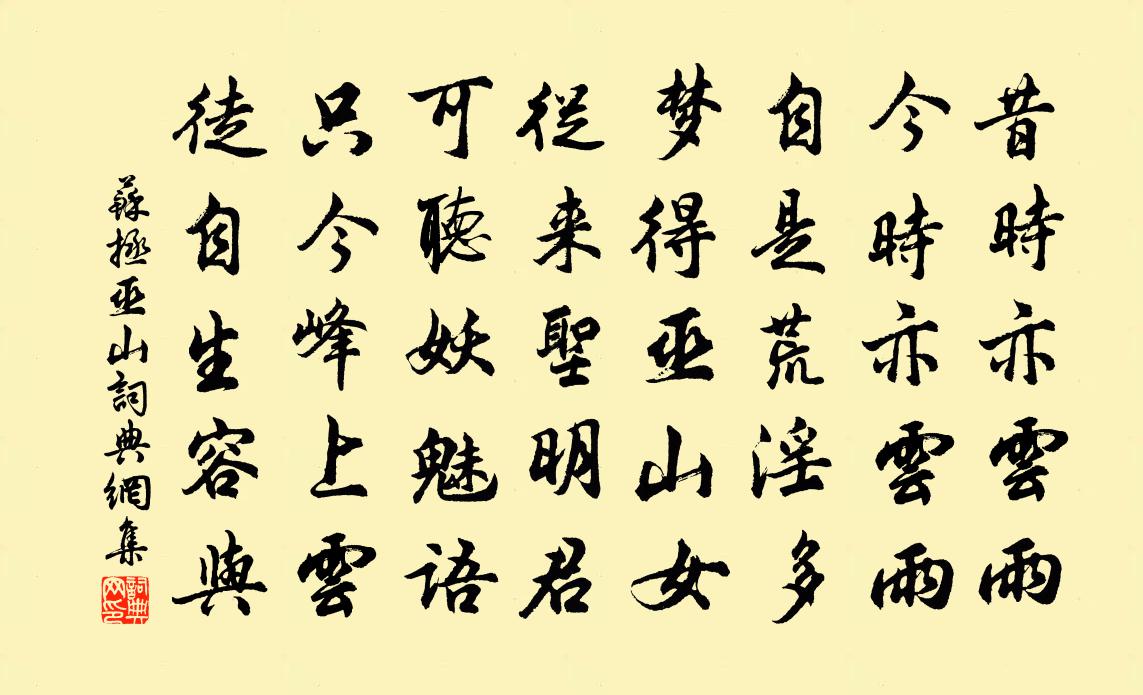 昔時亦雲雨
今時亦雲雨
自是荒淫多
梦得巫山女
從来聖明君
可聽妖魅語
只今峰上雲
徒自生容與
蘇拯巫山詞典網集
詞典網印